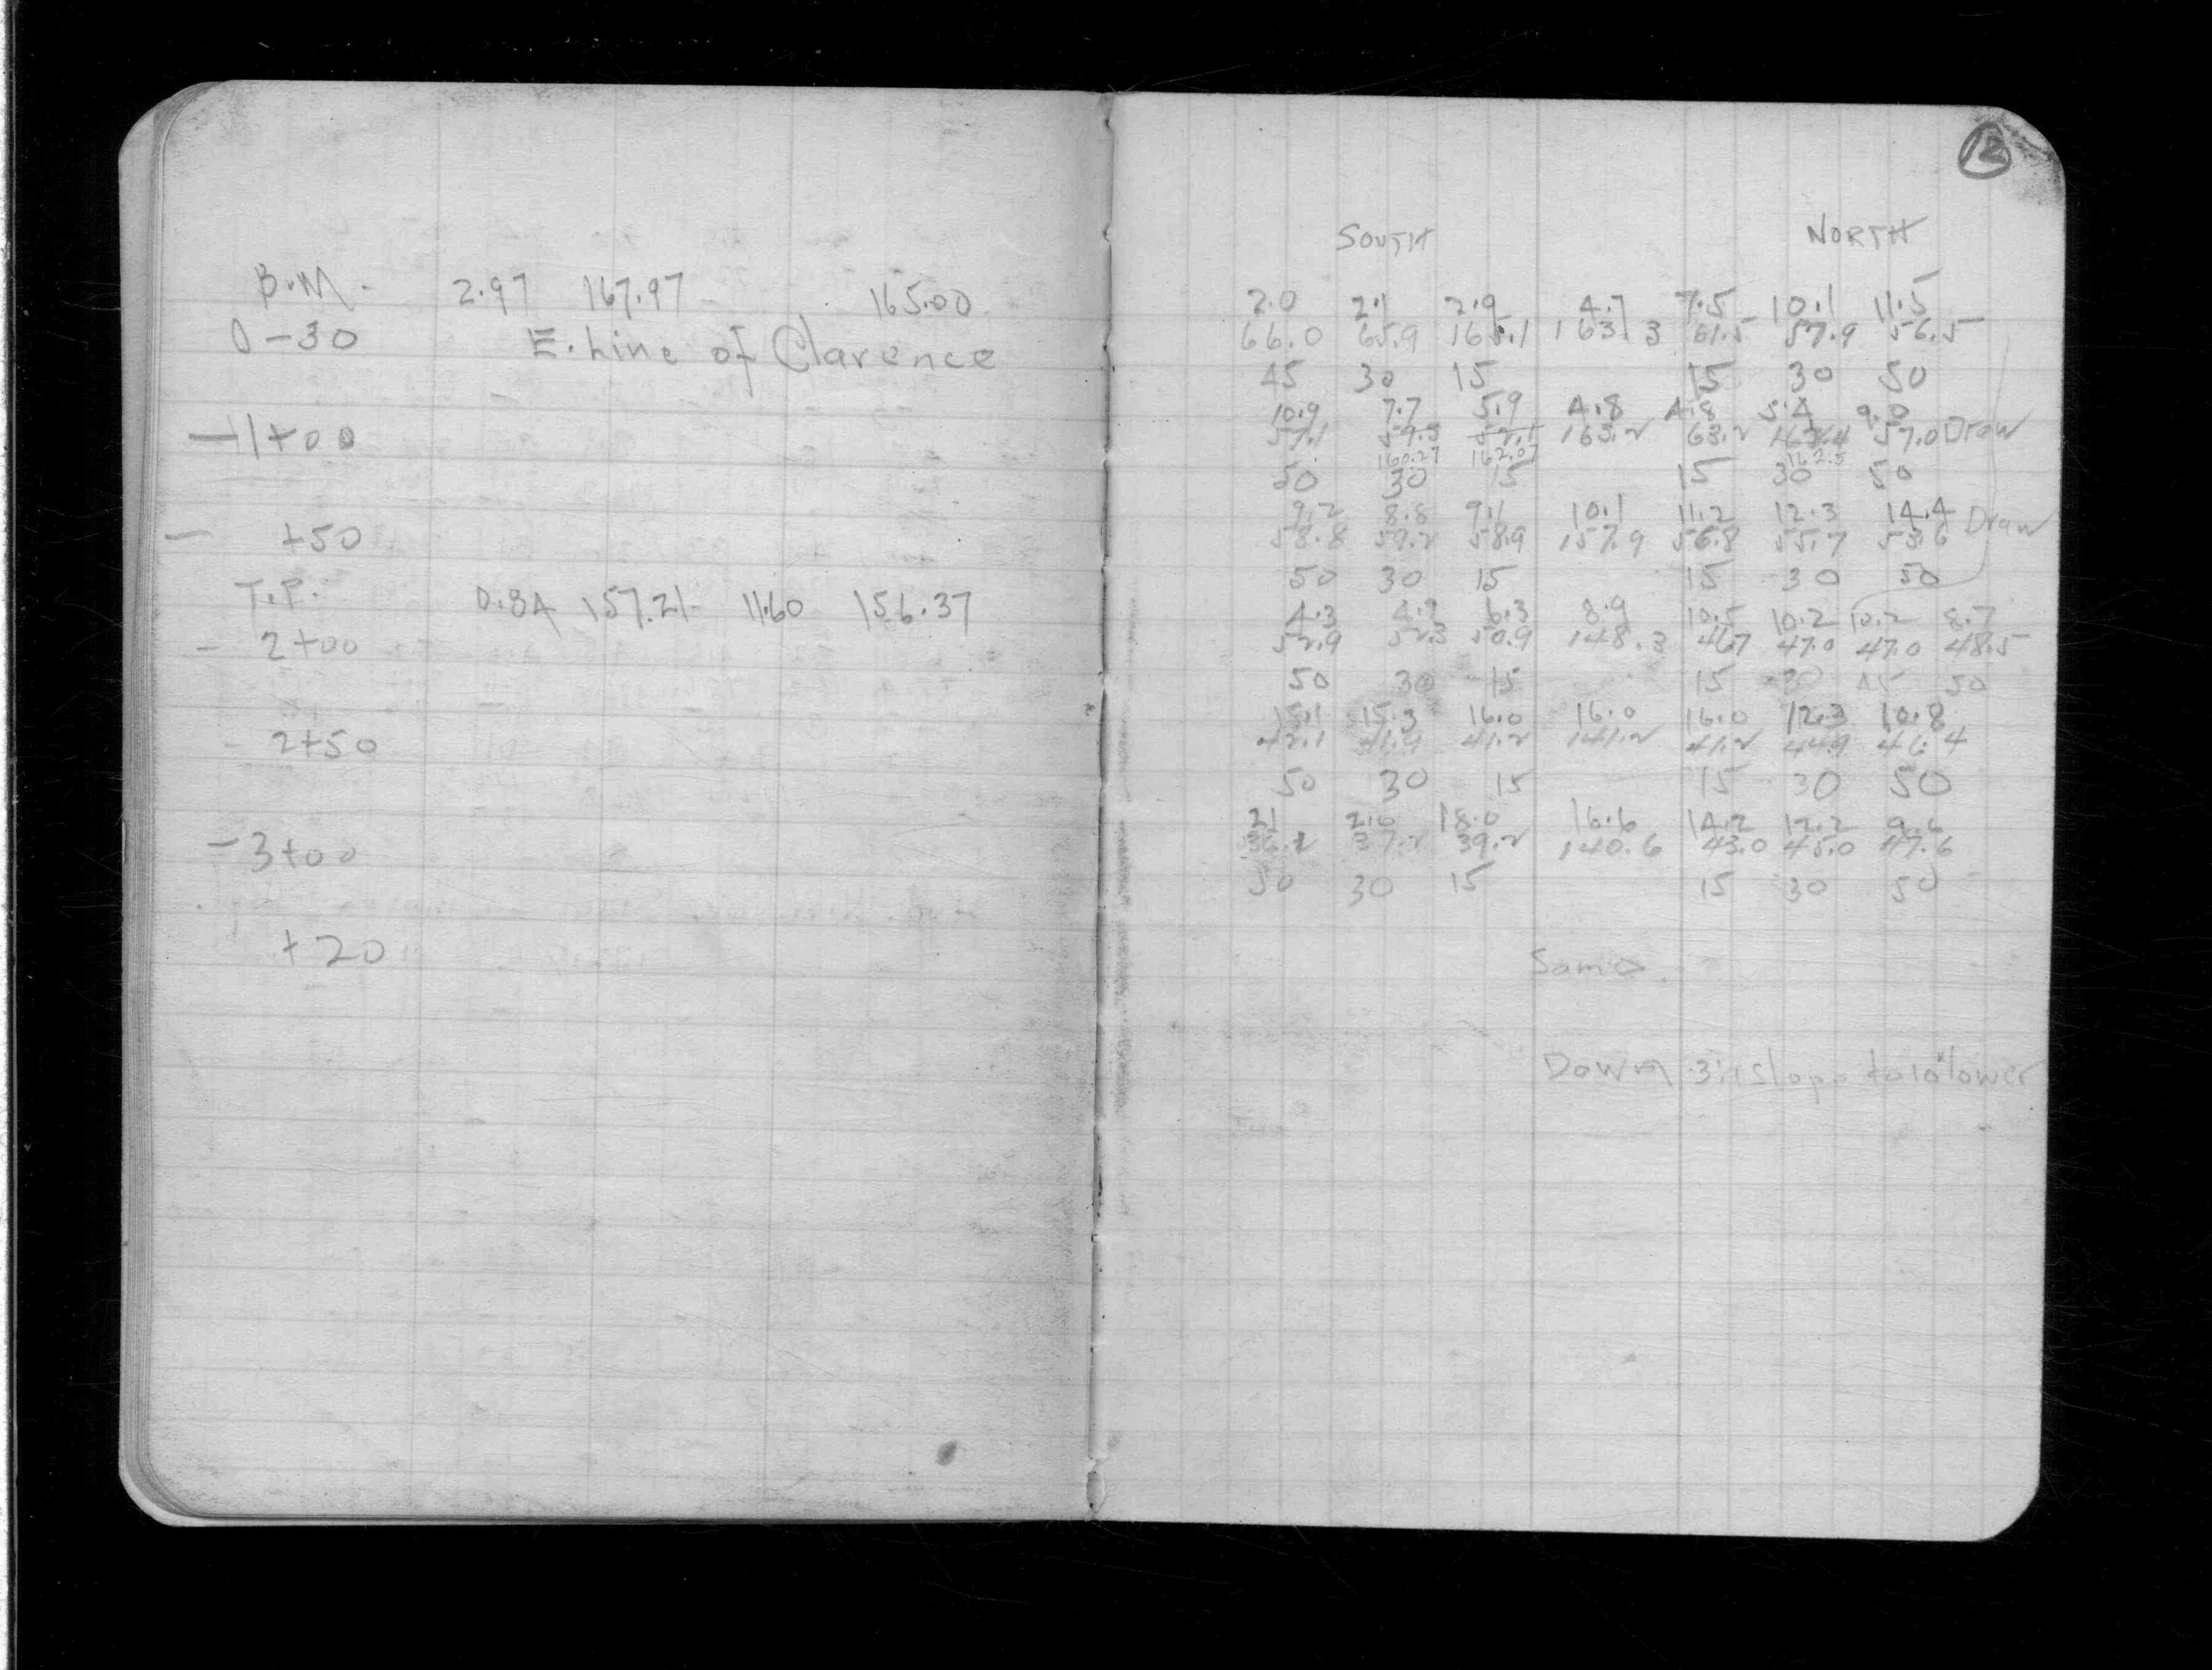 B.M. 2.97 167.97 165.00
0-30 E. Line of Clarence
-1+00
- +50
T.P. 0.84 157.21 11.60 156.37
- 2+00
- 2+50
- 3+00
+20
12
SOUTH NORTH
2.0 2.1 2.9 4.7 7.5 10.1 11.5
66.0 65.9 165.1 163.3 61.5 57.9 56.5
45 30 15 15 30 50
10.9 7.7 5.9 4.8 4.8 5.4 9.0
57.1 59.3 52.1 163.2 63.2 162.4 57.0 Draw
160.27 162.07 162.5
50 30 15 15 30 50
9.2 8.8 9.1 10.1 11.2 12.3 14.4 Draw
58.8 59.2 58.9 157.9 56.8 55.7 53.6
50 30 15 15 30 50
4.3 4.9 6.3 8.9 10.5 10.2 10.2 8.7
52.9 52.3 50.9 148.3 46.7 47.0 47.0 48.5
50 30 15 15 30 45 50
15.1 15.3 16.0 16.0 16.0 12.3 10.8
42.1 41.9 41.2 141.2 41.2 44.9 46.4
50 30 15 15 30 50
21 18.0 16.6 14.2 12.2 9.6
36.2 37.2 39.2 140.6 43.0 45.0 47.6
50 30 15 15 30 50
Same
Down 3:1 slope to 10" lower